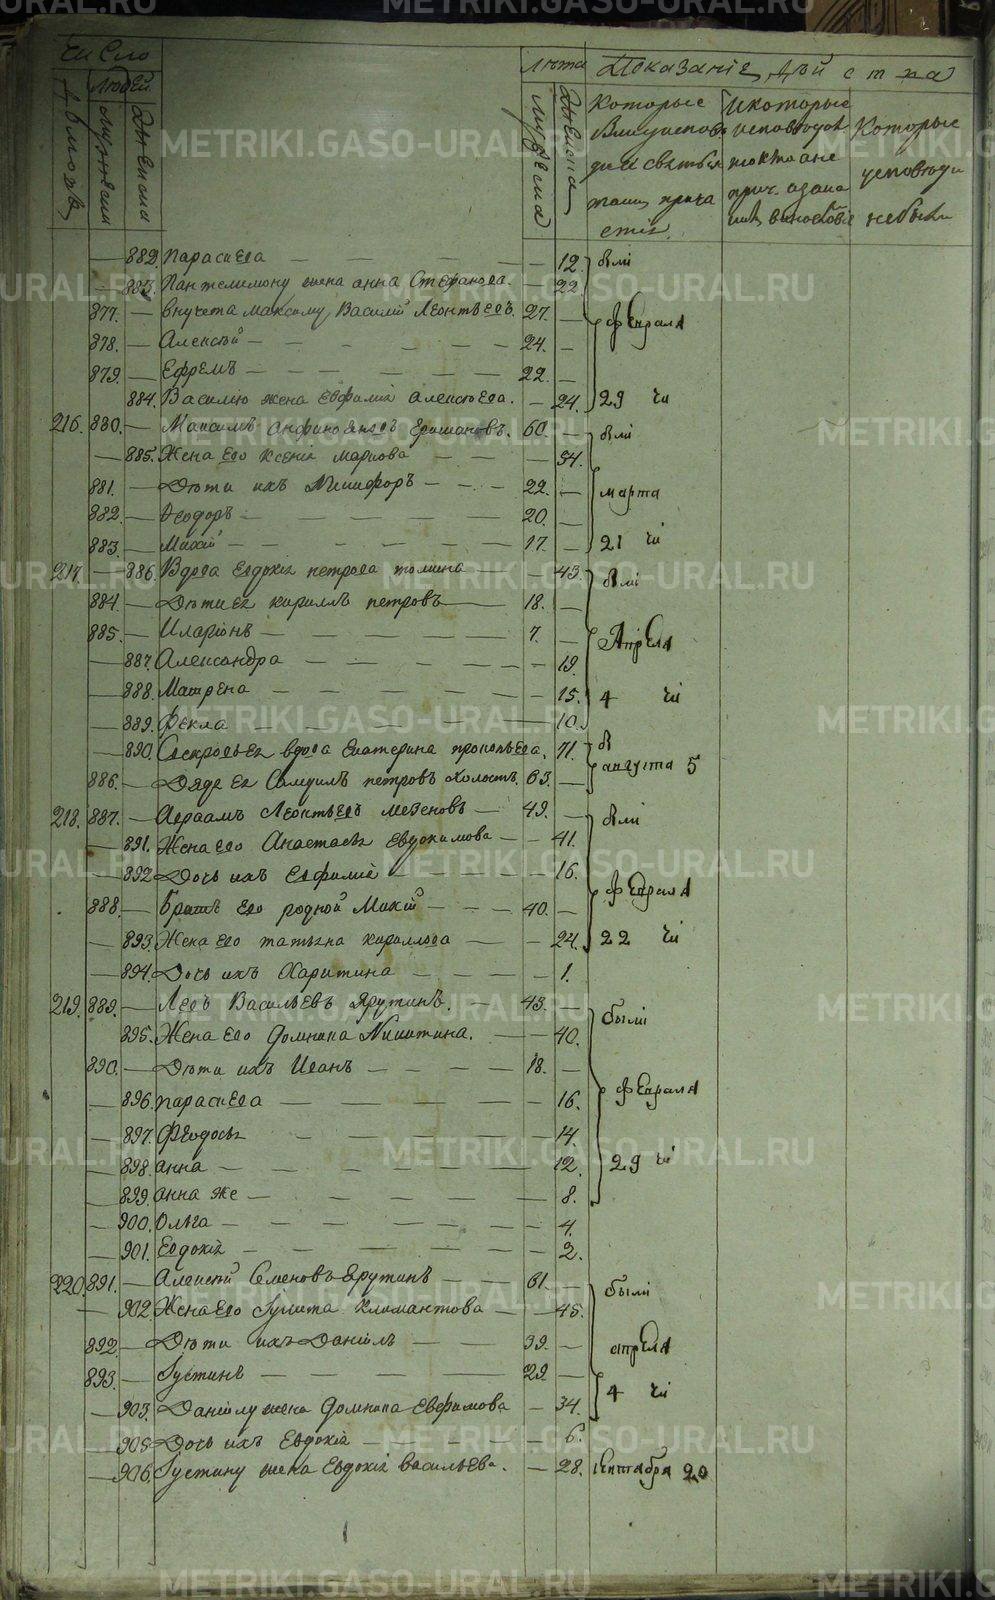 Число
Людей
Домовъ
Мужеска
Женска
Лѣта
Мужеска
Женска
Показаніе дѣйства
Которые
дни святыхъ
таинъ прича
стія.
И которые
исповѣдов
токмо а не
прич. а за ка
Которые
исповѣди
не были
882. Параскева — 12. были
883. Пантелемону жена Анна Стефанова. — 22
877. — внучата Максиму Василий Леонтьевъ. 27. — февраля
878. — Алексѣй — 24. —
879. — Ефремъ — 22. —
884. Василью жена Евфимія Алексѣева. — 24. 29 чи
216. 880. — Максимъ Ершановъ. 60. — были
— 885. Жена Его Ксенія Маркова — 54.
881. — Дѣти ихъ Никифоръ — 22. — марта
882. — Ѳеодоръ — 20. —
883. — Мокій — 17. — 21 чи
217. — 886. Вдова Евдокія Петрова Томина — 43. были
884. — Дѣти ея Кириллъ Петровъ — 18. —
885. — Иларіонъ — 7. — Апреля
— 887. Александра — 19.
— 888. Матрена — 15. 4 чи
— 889. Фекла — 10.
— 890. Свекровь ея вдова Екатерина Прокопьева. 71. в
886. — Дядя ея Самуилъ Петровъ холостъ. 63. — августа 5
218. 887. — Авраамъ Леонтьевъ Мезеновъ — 49. — были
— 891. Жена его Анастасья Евдокимова — 41.
— 892 Дочь ихъ Евфимія — 16. февраля
888. — Братъ Его родной Мокій — 40. —
— 893. Жена Его Татьяна Кириллова — 24. 22 чи
— 894. Дочь ихъ Харитина — 1.
219. 889. — Левъ Васильевъ Ярутинъ. — 43. — были
— 895. Жена Его Домника Никитина. — 40.
890. — Дѣти ихъ Иванъ — 18. — февраля
— 896. Параскева — 16.
— 897. Феодосья — 14.
— 898. Анна — 12. 29 чи
— 899. Анна же — 8.
— 900. Ольга — 4.
— 901. Евдокія — 2.
220. 891. — Алексѣй Семеновъ Ярутинъ — 61. — были
— 902. Жена Его Гулита Климантова — 45.
892. — Дѣти ихъ Даніилъ — 39. — апреля
893. — Густинъ — 29. —
— 903. Даніилу жена Домника Евфимова — 34. 4 чи
— 905. Дочь ихъ Евдокія — 6.
— 906. Густину жена Евдокія Васильева. — 28. сентября 20
METRIKI.GASO-URAL.RU